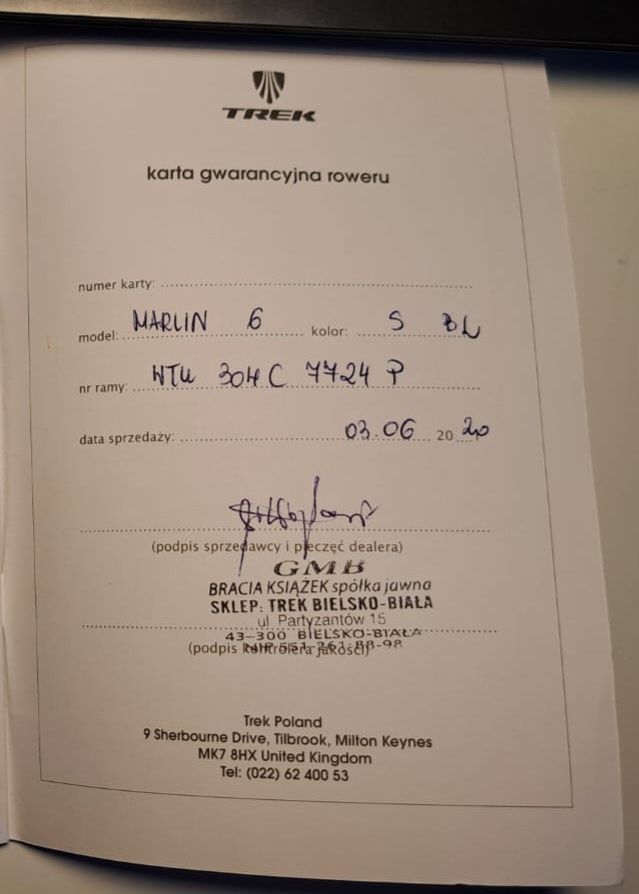 TREK
karta gwarancyjna roweru
numer karty:
model: MARLIN 6 kolor: S BL
nr ramy: WTU 304 C 7724 P
data sprzedaży: 03.06 20 20
(podpis sprzedawcy i pieczęć dealera)
GMB
BRACIA KSIĄŻEK spółka jawna
SKLEP: TREK BIELSKO-BIAŁA
ul. Partyzantów 15
43-300 BIELSKO-BIAŁA
(podpis kontrolera jakości)
Trek Poland
9 Sherbourne Drive, Tilbrook, Milton Keynes
MK7 8HX United Kingdom
Tel: (022) 62 400 53